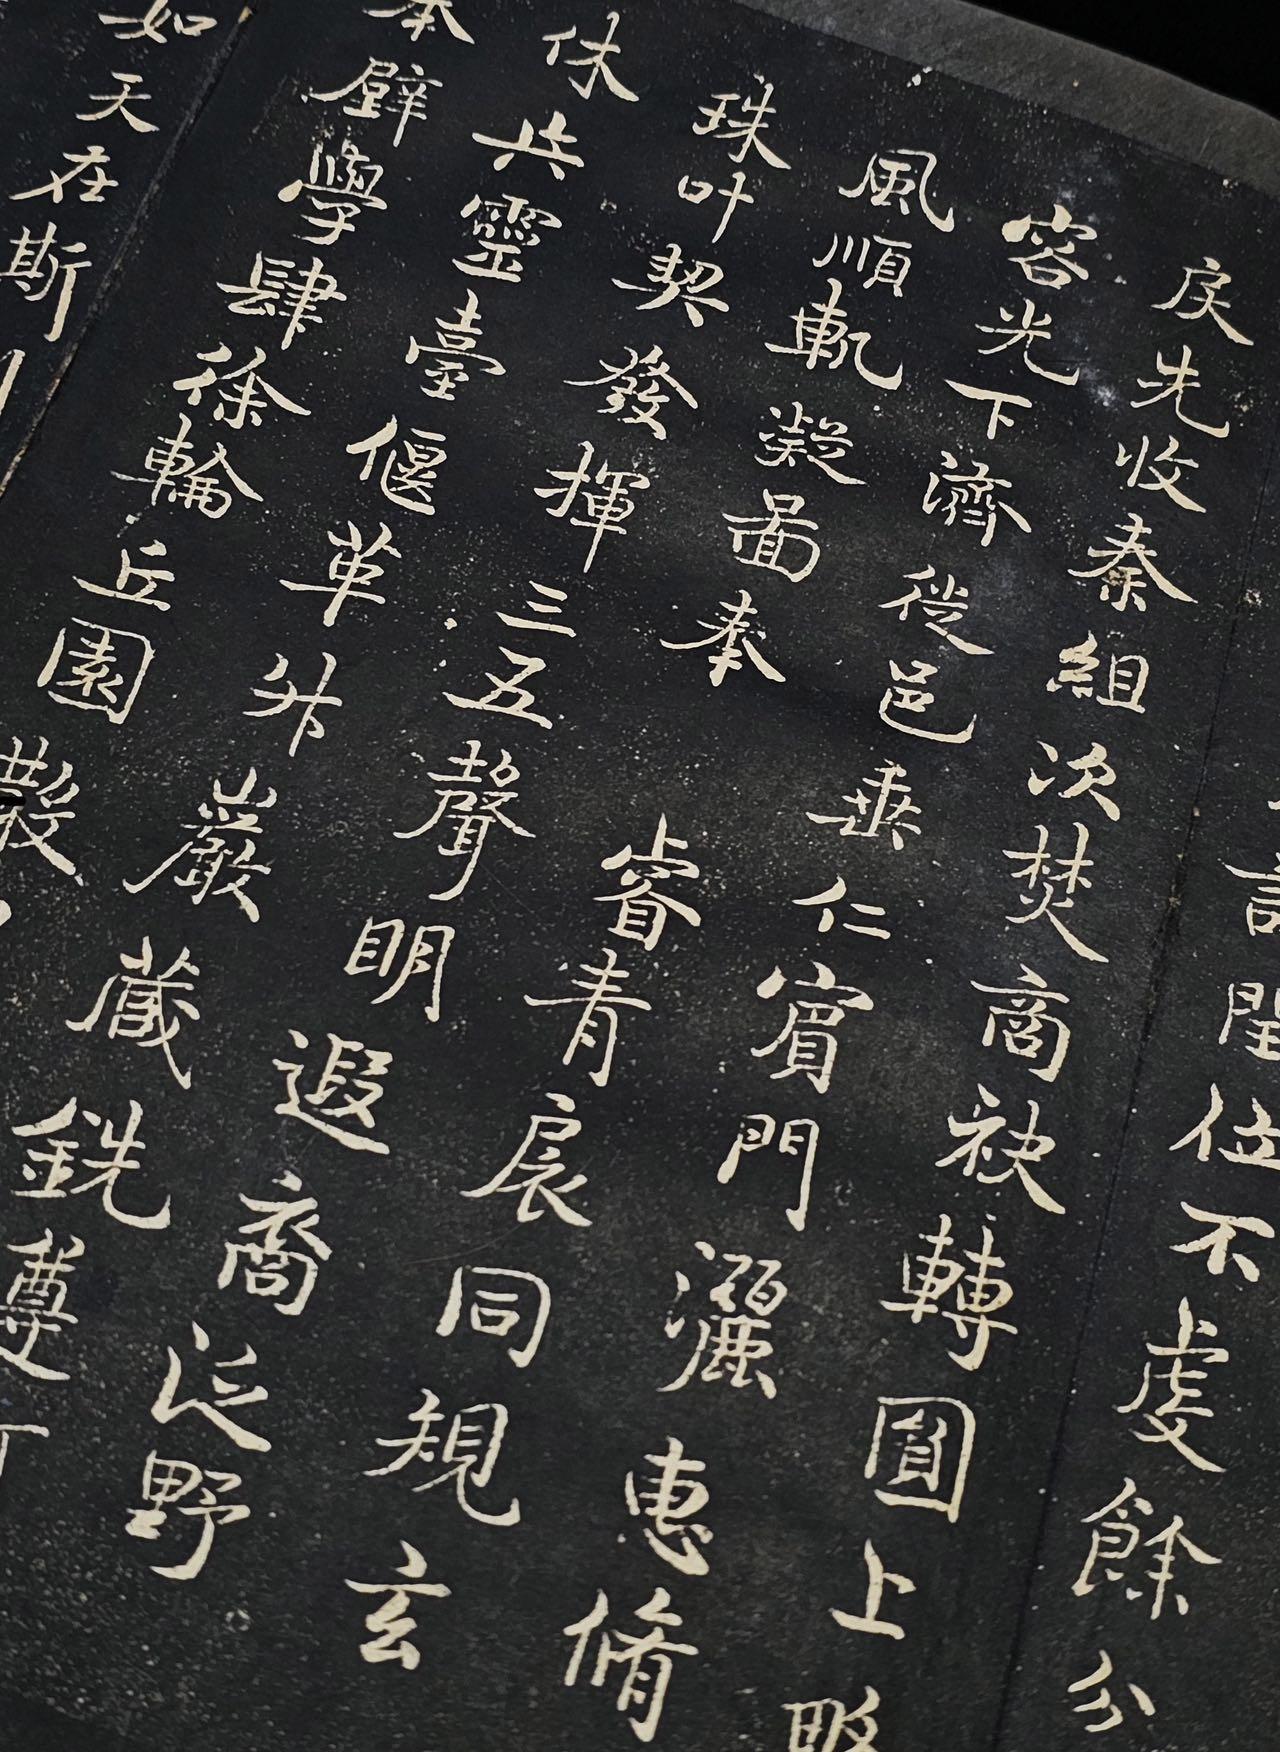 閏位不虔餘分
戾先收秦組次焚商袂轉圓上略
容光下濟徙邑垂仁賓門灑惠脩
風順軌凝圖奉 睿青扆同規玄
珠叶契發揮三五聲明遐裔泛野
休兵靈臺偃革升巖蔵銑
本辟學肆徐輪丘園散
如天在斯